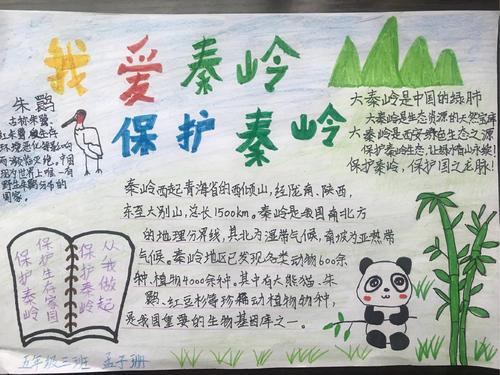 我爱秦岭
保护秦岭
朱鹮
古称朱鹭、
红朱鹭
环境恶化等影响
而濒临灭绝，中国
现为世界上唯一有
野生朱鹮分布的
国家。
大秦岭是中国的绿肺
大秦岭是生态资源的天然宝库
大秦岭是西安绿色生态之源
保护秦岭生态，让
保护秦岭，保护国之龙脉！
秦岭西起青海省的西倾山，经陇南、陕西，
东至大别山，总长1500km。秦岭是我国南北方
的地理分界线，其北为温带气候，南坡为亚热带
气候。秦岭地区已发现各类动物600余
种、植物4000余种。其中有大熊猫、朱
鹮、红豆杉等珍稀动植物物种，
是我国重要的生物基因库之一。
从我做起
保护秦岭
保护生存家园
保护秦岭
五年级三班 孟子珊